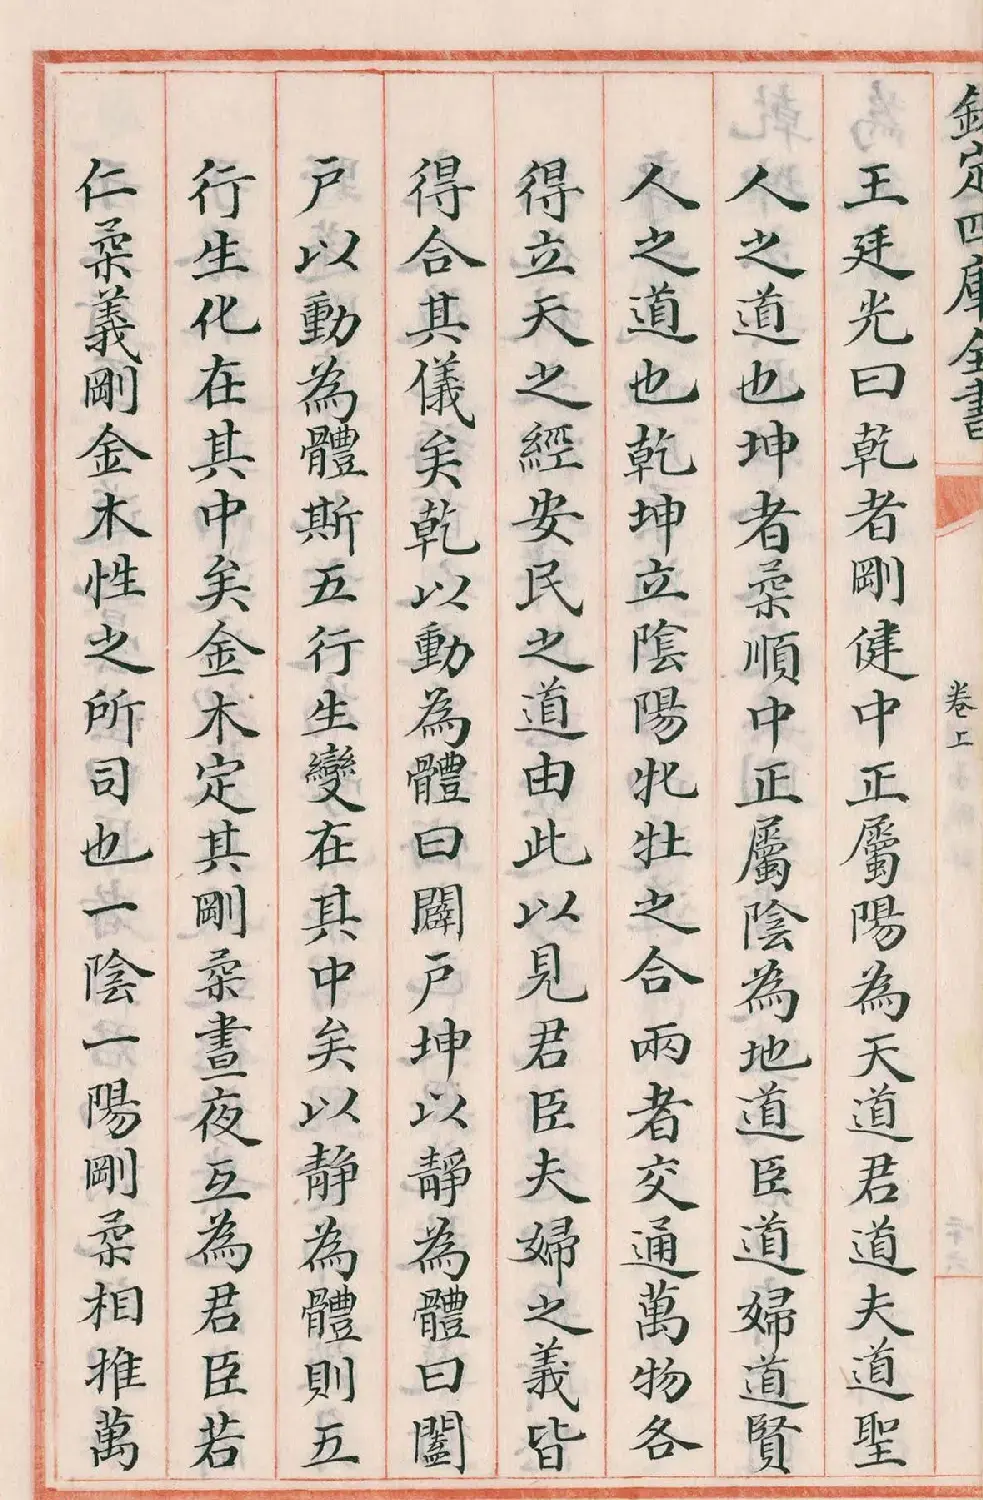 欽定四庫全書
卷上
王廷光曰乾者剛健中正屬陽為天道君道夫道聖
人之道也坤者柔順中正屬陰為地道臣道婦道賢
人之道也乾坤立陰陽牝牡之合兩者交通萬物各
得立天之經安民之道由此以見君臣夫婦之義皆
得合其儀矣乾以動為體曰闢戶坤以靜為體曰闔
戶以動為體斯五行生變在其中矣以静為體則五
行生化在其中矣金木定其剛柔晝夜互為君臣若
仁柔義剛金木性之所司也一陰一陽剛柔相推萬